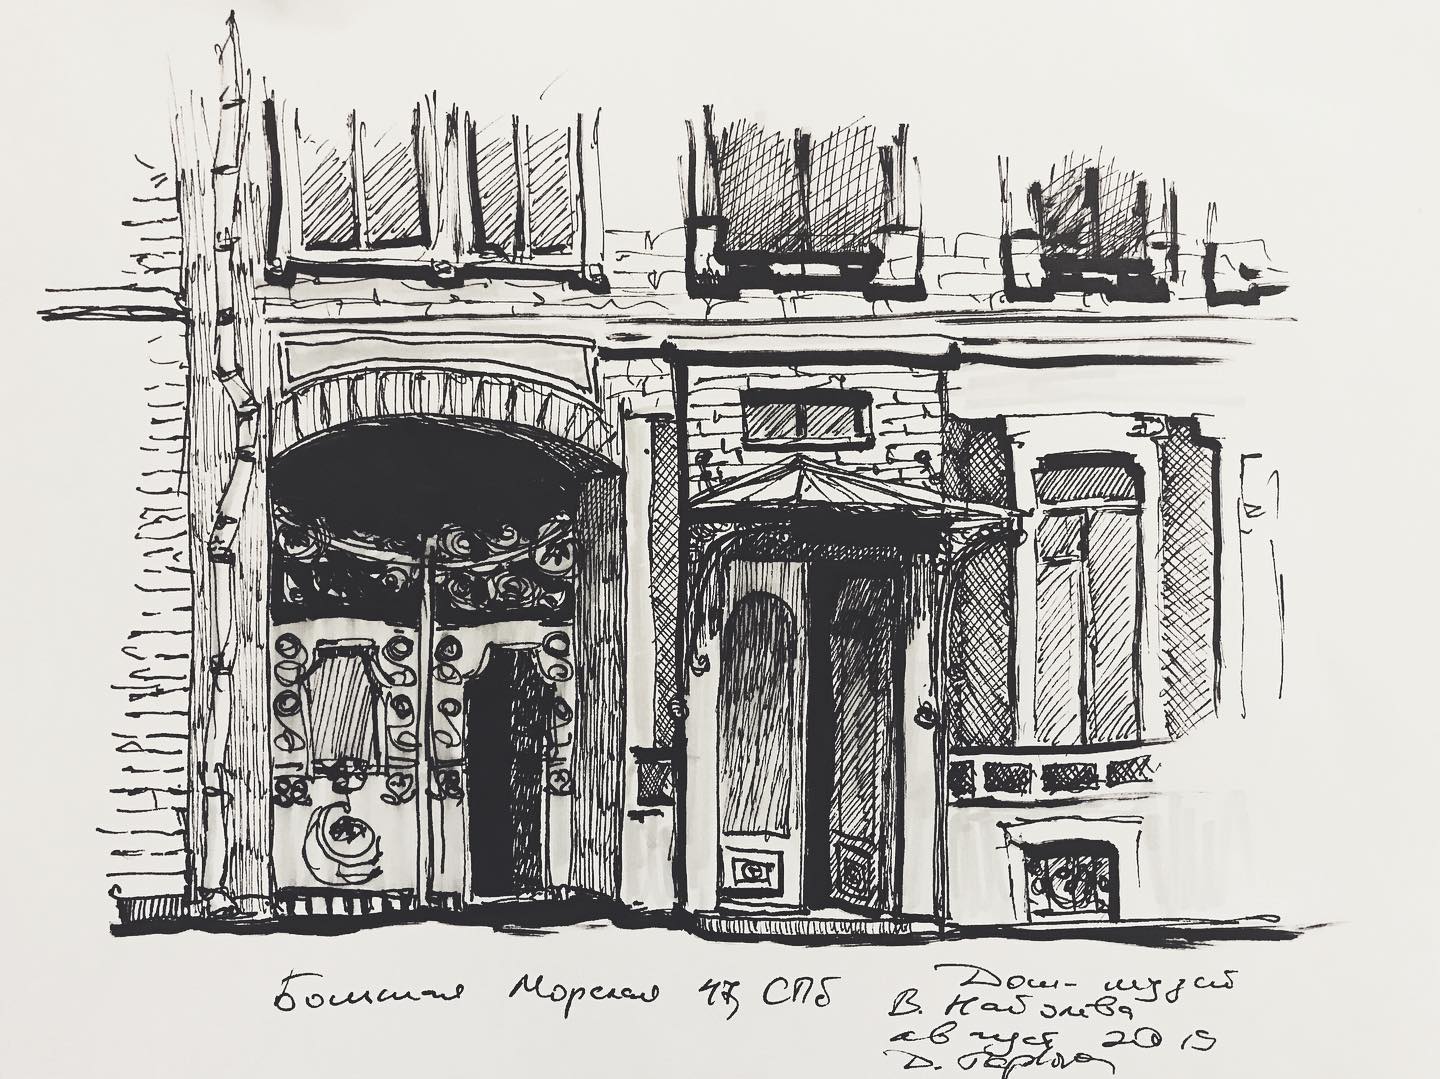 Большая Морская 47, СПб
Дом-музей
В. Набокова
август 2019
Д.